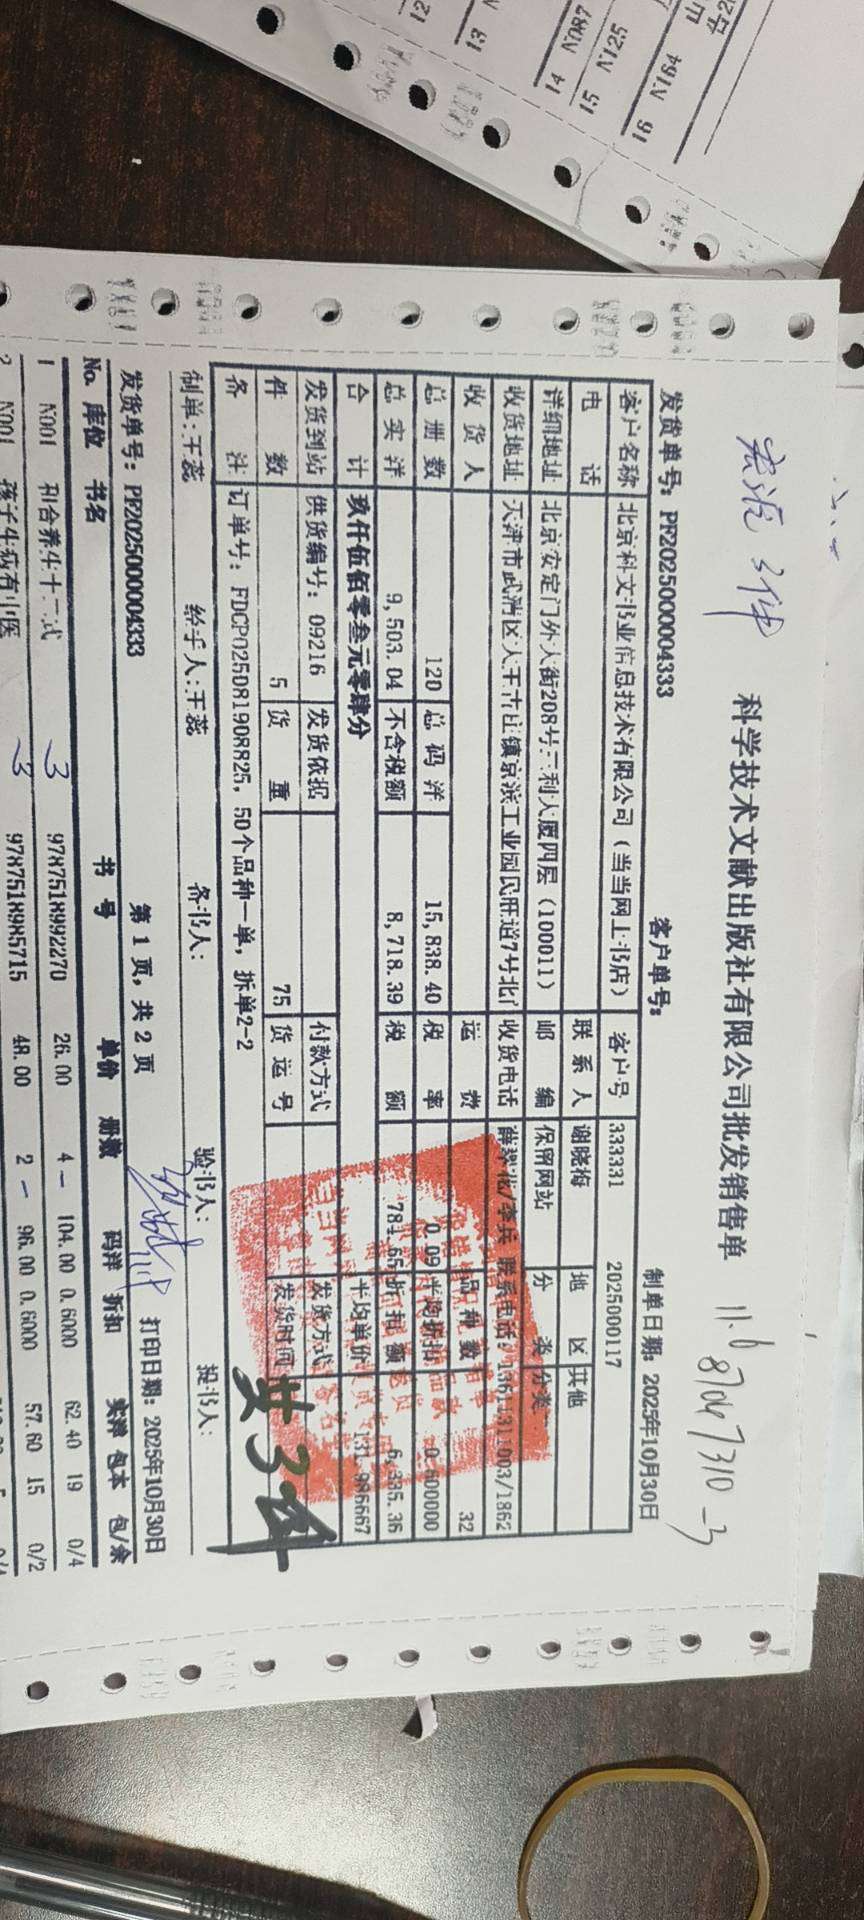 宏流 3件
科学技术文献出版社有限公司批发销售单 11.6 87047310-3
发货单号：PF2025000004333 客户单号： 制单日期：2025年10月30日
客户名称 北京科文书业信息技术有限公司（当当网上书店） 客户号 333331 2025000117
电话 联系人 谢晓梅 地区 其他
详细地址 北京安定门外大街208号三利大厦四层（100011） 邮编 保留网站 分类 分类
收货地址 天津市武清区大王古庄镇京滨工业园民旺道7号北门 收货电话
收货人 运费 品种数 32
总册数 120 总码洋 15,838.40 税率 0.09 平均折扣 0.600000
总实洋 9,503.04 不含税额 8,718.39 税额 784.65 折扣额 6,335.36
合计 玖仟伍佰零叁元零肆分 平均单价 131.986667
发货到站 供货编号：09216 发货依据 付款方式 发货方式
件数 5 货重 75 货运号 发货时间
备注 订单号：FDCP025081908825，50个品种一单，拆单2-2
共3件
制单：王蕊 经手人：王蕊 各书人： 验书人： 提书人：
发货单号：PF2025000004333 第 1 页，共 2 页 打印日期：2025年10月30日
No. 库位 书名 书号 单价 册数 码洋 折扣 实洋 包本 包/余
1 N001 和合养生十二式 3 9787518992270 26.00 4 — 104.00 0.6000 62.40 19 0/4
2 N001 孩子生病有中医 3 9787518985715 48.00 2 — 96.00 0.6000 57.60 15 0/2
12
13
14 N087
15 N125
16 N164